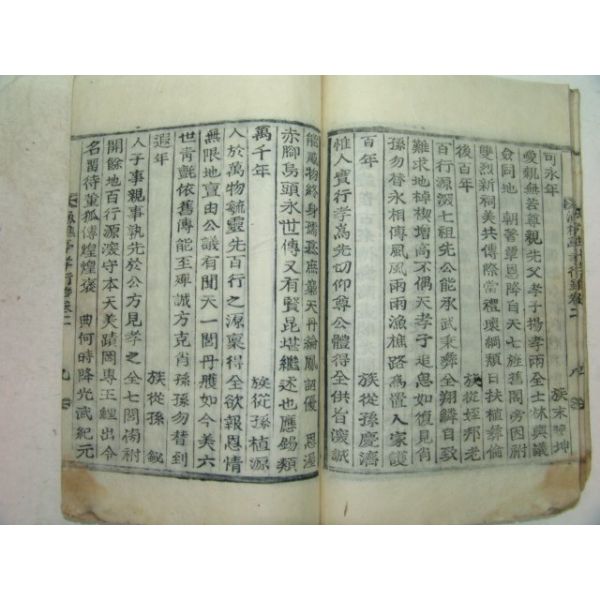 可永年 族末 坤
愛親無若尊親先父孝子揚孝兩全士林與議
僉同地 朝署 恩降自天七旌舊閭 因
雙烈新祠美共傳際當禮壞綱頹日扶植彛倫
後百年 族從姪邦老
百行源深七祖先公能承武秉彛全翔鱗自致
難求地棹楔增高不偶天孝子追思如復見肖
孫勿替永相傳風雨雨漁樵路爲置人家護
百年 族從孫慶濟
惟人實行孝爲先切仰尊公體得全供省深誠
能 物終身 慕庶 天丹綸鳳詔優 恩渥
赤脚烏頭永世傳又有賢昆堪繼述也應錫類
萬千年 族從孫植源
人於萬物毓靈先百行之源稟得全欲報恩情
無限地賣由公議有聞天一閭丹雘如今美六
世靑氈依舊傳能至殫誠方克肖孫孫勿替到
遐年 族從孫
人子事親事執先於公方見孝之全七閭 耐
開餘地百行源深守本天美蹟岡專玉 出今
名留待董狐傳煌煌 典何時降光武紀元